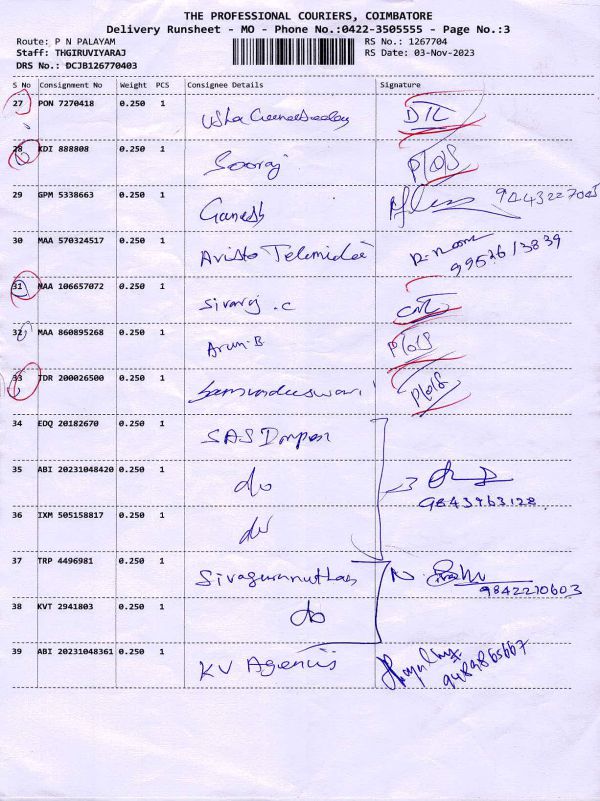 THE PROFESSIONAL COURIERS, COIMBATORE
Delivery Runsheet - MO - Phone No.:0422-3505555 - Page No.:3
Route: P N PALAYAM
RS No.: 1267704
Staff: THGIRUVIYARAJ
RS Date: 03-Nov-2023
DRS No.: DCJB126770403
S No Consignment No Weight PCS Consignee Details Signature
27 PON 7270418 0.250 1 Usha
28 KDI 888808 0.250 1 Sooraj P/O/S
29 GPM 5338663 0.250 1 Ganesh
30 MAA 570324517 0.250 1 Aristo
9952613839
31 MAA 106657072 0.250 1 Sivaraj .C
32 MAA 860895268 0.250 1 Arun.B P/O/S
33 TDR 200026500 0.250 1 P/O/S
34 EDQ 20182670 0.250 1 SAS
35 ABI 20231048420 0.250 1 do
9843963128
36 IXM 505158817 0.250 1 do
37 TRP 4496981 0.250 1
9842210603
38 KVT 2941803 0.250 1 do
39 ABI 20231048361 0.250 1 KV Agencies